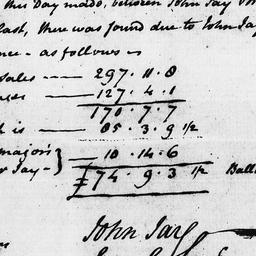 this Day made, between John Jay
last, there was found due to John Jay
nce - as follows is
Sales —— 297.11.8
127.4.1
170.7.7
is —— 85.3.9 1/2
major's } 10.14.6
r Jay- £74.9.3 1/2 Ball
John Jay